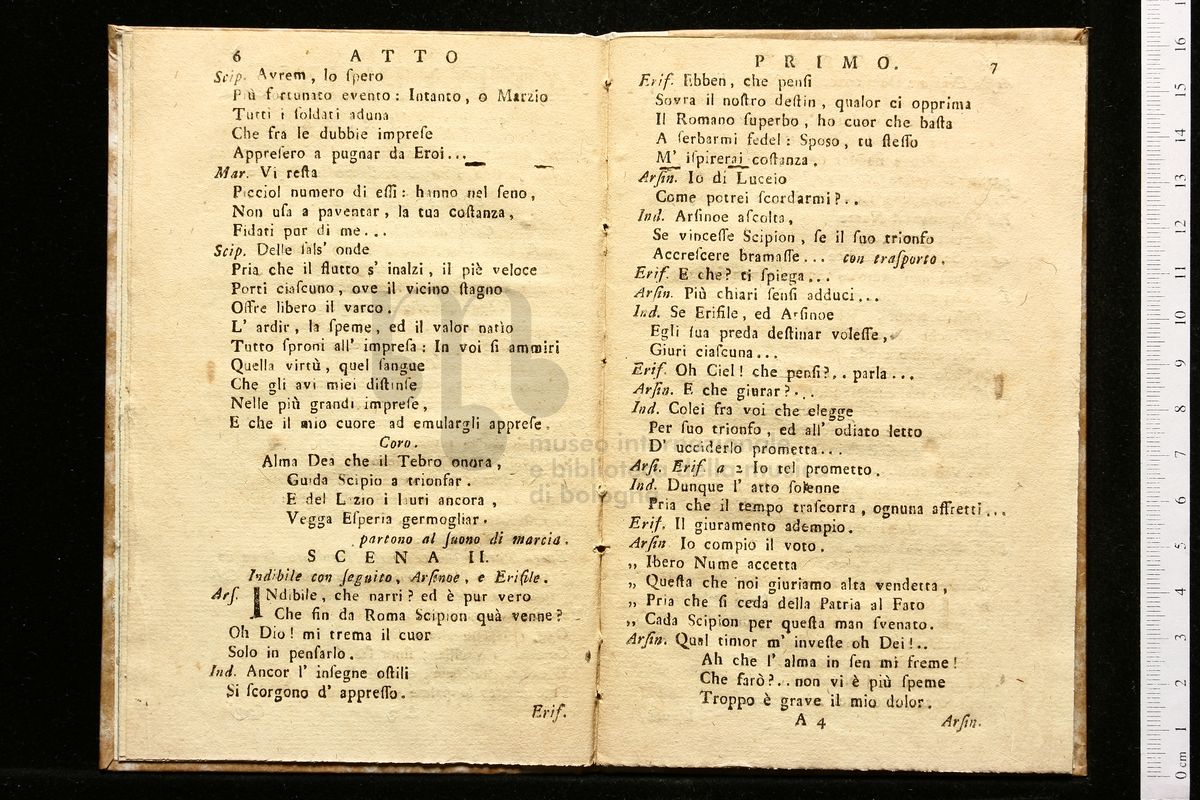 6 ATTO
Scip. Avrem, lo ſpero
Più fortunato evento: Intanto, o Marzio
Tutti i ſoldati aduna
Che fra le dubbie impreſe
Appreſero a pugnar da Eroi...
Mar. Vi reſta
Picciol numero di eſſi: hanno nel ſeno,
Non uſa a paventar, la tua coſtanza,
Fidati pur di me...
Scip. Delle ſalſ' onde
Pria che il flutto s' inalzi, il piè veloce
Porti ciaſcuno, ove il vicino ſtagno
Offre libero il varco.
L' ardir, la ſpeme, ed il valor natìo
Tutto ſproni all' impreſa: In voi ſi ammiri
Quella virtù, quel ſangue
Che gli avi miei diſtinſe
Nelle più grandi impreſe,
E che il mio cuore ad emulargli appreſe.
Coro.
Alma Dea che il Tebro onora,
Guida Scipio a trionfar.
E del Lazio i lauri ancora,
Vegga Eſperia germogliar.
partono al ſuono di marcia.
SCENA II.
Indibile con ſeguito, Arſinoe, e Eriſile.
Arſ. INdibile, che narri? ed è pur vero
Che fin da Roma Scipion quà venne?
Oh Dio! mi trema il cuor
Solo in penſarlo.
Ind. Ancor l' inſegne oſtili
Si ſcorgono d' appreſſo.
Erif.
PRIMO. 7
Erif. Ebben, che penſi
Sovra il noſtro deſtin, qualor ci opprima
Il Romano ſuperbo, ho cuor che baſta
A ſerbarmi fedel: Spoſo, tu ſteſſo
M' iſpirerai coſtanza.
Arſin. Io di Luceio
Come potrei ſcordarmi?..
Ind. Arſinoe aſcolta,
Se vinceſſe Scipion, ſe il ſuo trionfo
Accreſcere bramaſſe... con traſporto.
Erif. E che? ti ſpiega...
Arſin. Più chiari ſenſi adduci...
Ind. Se Eriſile, ed Arſinoe
Egli ſua preda deſtinar voleſſe,
Giuri ciaſcuna...
Erif. Oh Ciel! che penſi?.. parla...
Arſin. E che giurar?...
Ind. Colei fra voi che elegge
Per ſuo trionfo, ed all' odiato letto
D' ucciderlo prometta...
Arſi. Erif. a 2 Io tel prometto.
Ind. Dunque l' atto ſolenne
Pria che il tempo traſcorra, ognuna affretti...
Erif. Il giuramento adempio.
Arſin Io compio il voto.
„ Ibero Nume accetta
„ Queſta che noi giuriamo alta vendetta,
„ Pria che ſi ceda della Patria al Fato
„ Cada Scipion per queſta man ſvenato.
Arſin. Qual timor m' inveſte oh Dei!..
Ah che l' alma in ſen mi freme!
Che farò?.. non vi è più ſpeme
Troppo è grave il mio dolor.
A 4 Arſin.
museo internazionale
e biblioteca della musica
di bologna
0 cm 1 2 3 4 5 6 7 8 9 10 11 12 13 14 15 16